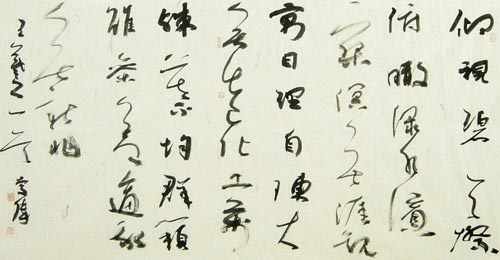 仰視碧天際
俯瞰渌水濱
寥無涯觀
寓目理自陳大
矣造化工萬
殊莫不均群籟
雖參差適我
無非新
王羲之一首